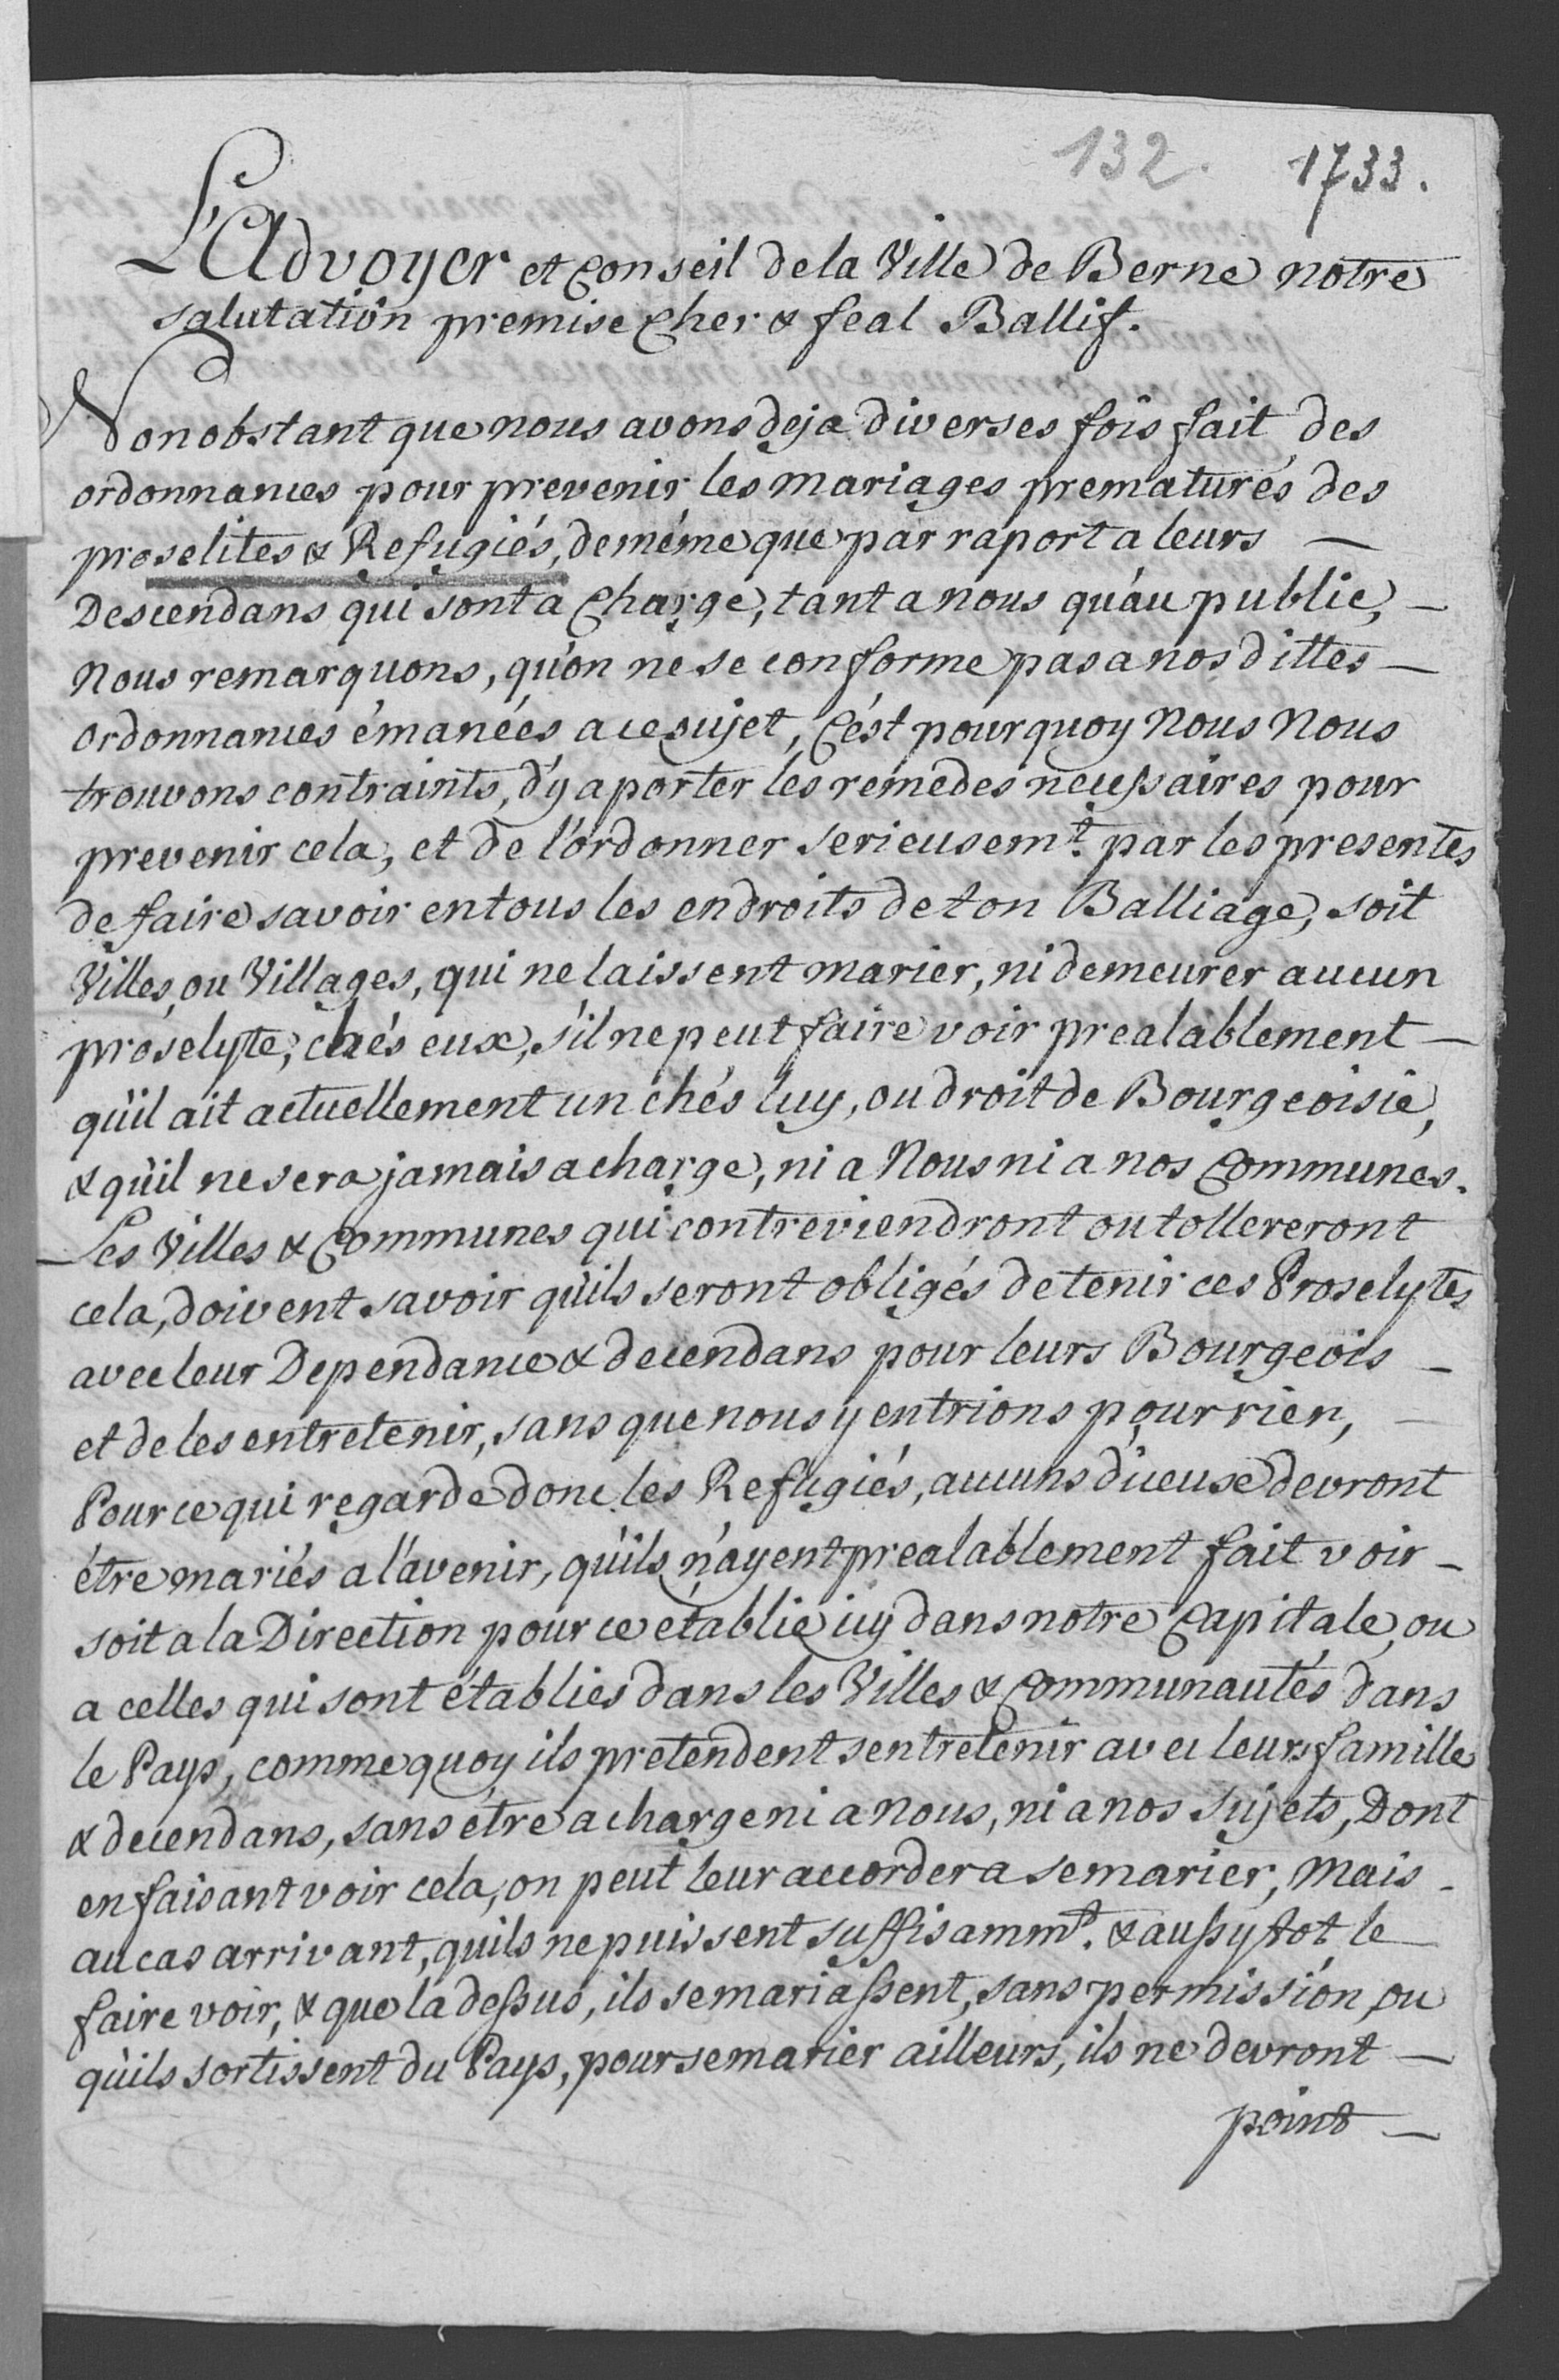 132. 1733.
L'Advoyer et Conseil de la Ville de Berne notre
salutation premise Cher & feal Ballif.
Nonobstant que nous avons deja diverses fois fait des
ordonnances pour prevenir les mariages prematurés des
proselites & Refugiés, de méme que par raport a leurs —
Descendans qui sont a Charge, tant a nous qu'au public, —
Nous remarquons, qu'on ne se conforme pas a nos dittes —
ordonnances émanées a ce sujet, C'est pourquoy Nous Nous
trouvons contraints, d'y aporter les remedes necessaires pour
prevenir cela, et de l'ordonner serieusemt. par les presentes
de faire savoir en tous les endroits de ton Balliage, soit
Villes, ou Villages, qui ne laissent marier, ni demeurer aucun
proselyte, chés eux, s'il ne peut faire voir prealablement —
qu'il ait actuellement un chés luy, ou droit de Bourgeoisie,
& qu'il ne sera jamais a charge, ni a Nous ni a nos Communes.
— Les Villes & Communes qui contreviendront ou tollereront
cela, doivent savoir qu'ils seront obligés de tenir ces Proselytes
avec leur Dependance & decendans pour leurs Bourgeois —
et de les entretenir, sans que nous y entrions pour rien, —
Pour ce qui regarde donc les Refugiés, aucuns d'iceux devront
étre mariés a l'avenir, qu'ils n'ayent prealablement fait voir —
soit a la Direction pour ce etablie icy dans notre Capitale, ou
a celles qui sont établies dans les Villes & Communautés dans
le Pays, comme quoy ils pretendent sentretenir avec leurs famille
& decendans, sans étre a charge ni a nous, ni a nos Sujets, Dont
en faisant voir cela, on peut leur accorder a se marier, Mais -
au cas arrivant, quils ne puissent suffisammt. & aussytot le
faire voir, & que la dessus, ils se mariassent, sans permission, ou
qu'ils sortissent du Pays, pour se marier ailleurs, ils ne devront —
point —